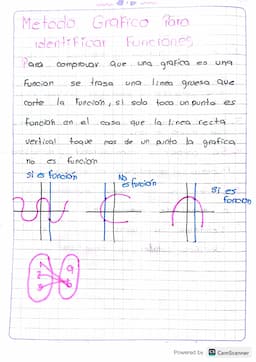 Metodo Grafico Para
identificar Funciones
Para comprobar que una grafica es una
funcion se trasa una linea gruesa que
corte la funcion, si solo toca un punto es
función en el caso que la linea recta
vertical toque mas de un punto la grafica
no es función
si es función
No
es función
si es
función
Powered by CS CamScanner